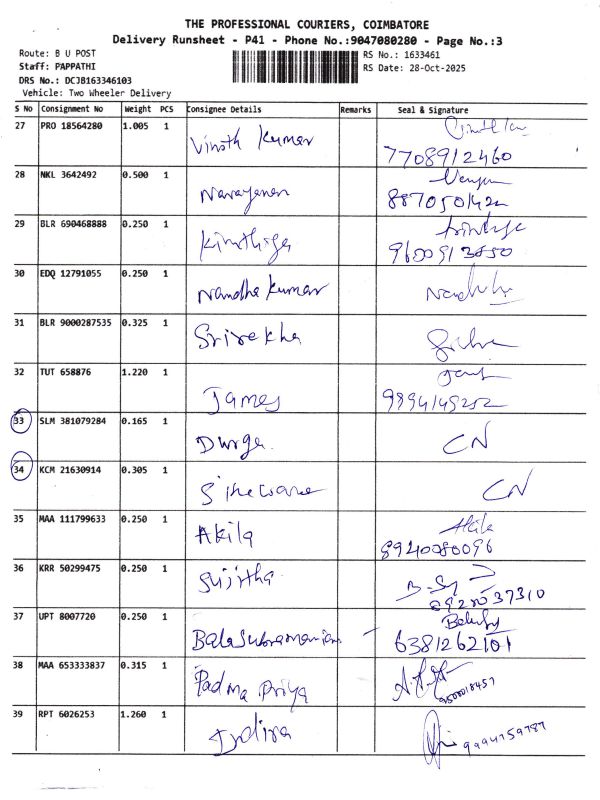 THE PROFESSIONAL COURIERS, COIMBATORE
Delivery Runsheet - P41 - Phone No.:9047080280 - Page No.:3
Route: B U POST
RS No.: 1633461
Staff: PAPPATHI
RS Date: 28-Oct-2025
DRS No.: DCJB163346103
Vehicle: Two Wheeler Delivery
S No Consignment No Weight PCS Consignee Details Remarks Seal & Signature
27 PRO 18564280 1.005 1 Vinoth Kumar
7708912460
28 NKL 3642492 0.500 1 Narayanan
29 BLR 690468888 0.250 1 Kiruthiga
30 EDQ 12791055 0.250 1 Nandha Kumar
31 BLR 9000287535 0.325 1 Srirekha
32 TUT 658876 1.220 1 James
9894149252
33 SLM 381079284 0.165 1 Durga CN
34 KCM 21630914 0.305 1 CN
35 MAA 111799633 0.250 1 Akila Akila
8940080096
36 KRR 50299475 0.250 1 Sujitha
8925037310
37 UPT 8007720 0.250 1 Balasubramaniam
6381262101
38 MAA 653333837 0.315 1 Padma Priya
9500018457
39 RPT 6026253 1.260 1 Indira
9994759787